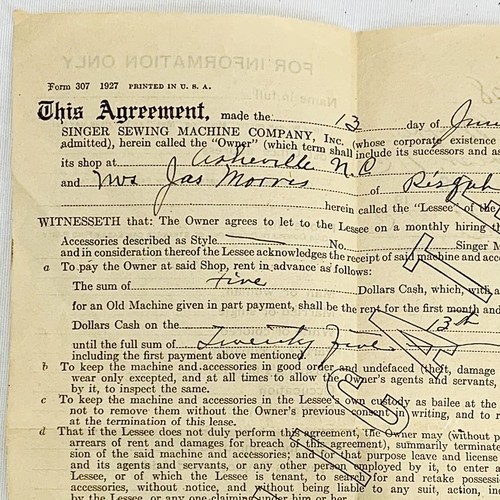 FOR INFORMATION ONLY
Form 307 1927 PRINTED IN U. S. A.
This Agreement, made the 13 day of June
SINGER SEWING MACHINE COMPANY, Inc. (whose corporate existence
admitted), herein called the "Owner" (which term shall include its successors and as
its shop at Asheville N.C
and Mrs Jas Morris of Pisgah
herein called the "Lessee" of the
WITNESSETH that: The Owner agrees to let to the Lessee on a monthly hiring th
Accessories described as Style No. Singer M
and in consideration thereof the Lessee acknowledges the receipt of said machine and acce
a To pay the Owner at said Shop, rent in advance as follows:
The sum of Five Dollars Cash, which, with a
for an Old Machine given in part payment, shall be the rent for the first month and
Dollars Cash on the 13th
until the full sum of Twenty five
including the first payment above mentioned.
b To keep the machine and accessories in good order and undefaced (theft, damage
wear only excepted, and at all times to allow the Owner's agents and servants,
by it, to inspect the same.
c To keep the machine and accessories in the Lessee's own custody as bailee at the
not to remove them without the Owner's previous consent in writing, and to r
at the termination of this lease.
d That if the Lessee does not duly perform this agreement, the Owner may (without p
arrears of rent and damages for breach of this agreement), summarily terminate
sion of the said machine and accessories; and for that purpose leave and license
and its agents and servants, or any other person employed by it, to enter
Lessee, or of which the Lessee is tenant, to search for and retake possess
accessories, without notice, and without being liable to any suit, action, in
by the Lessee, or any one claiming under him or her.